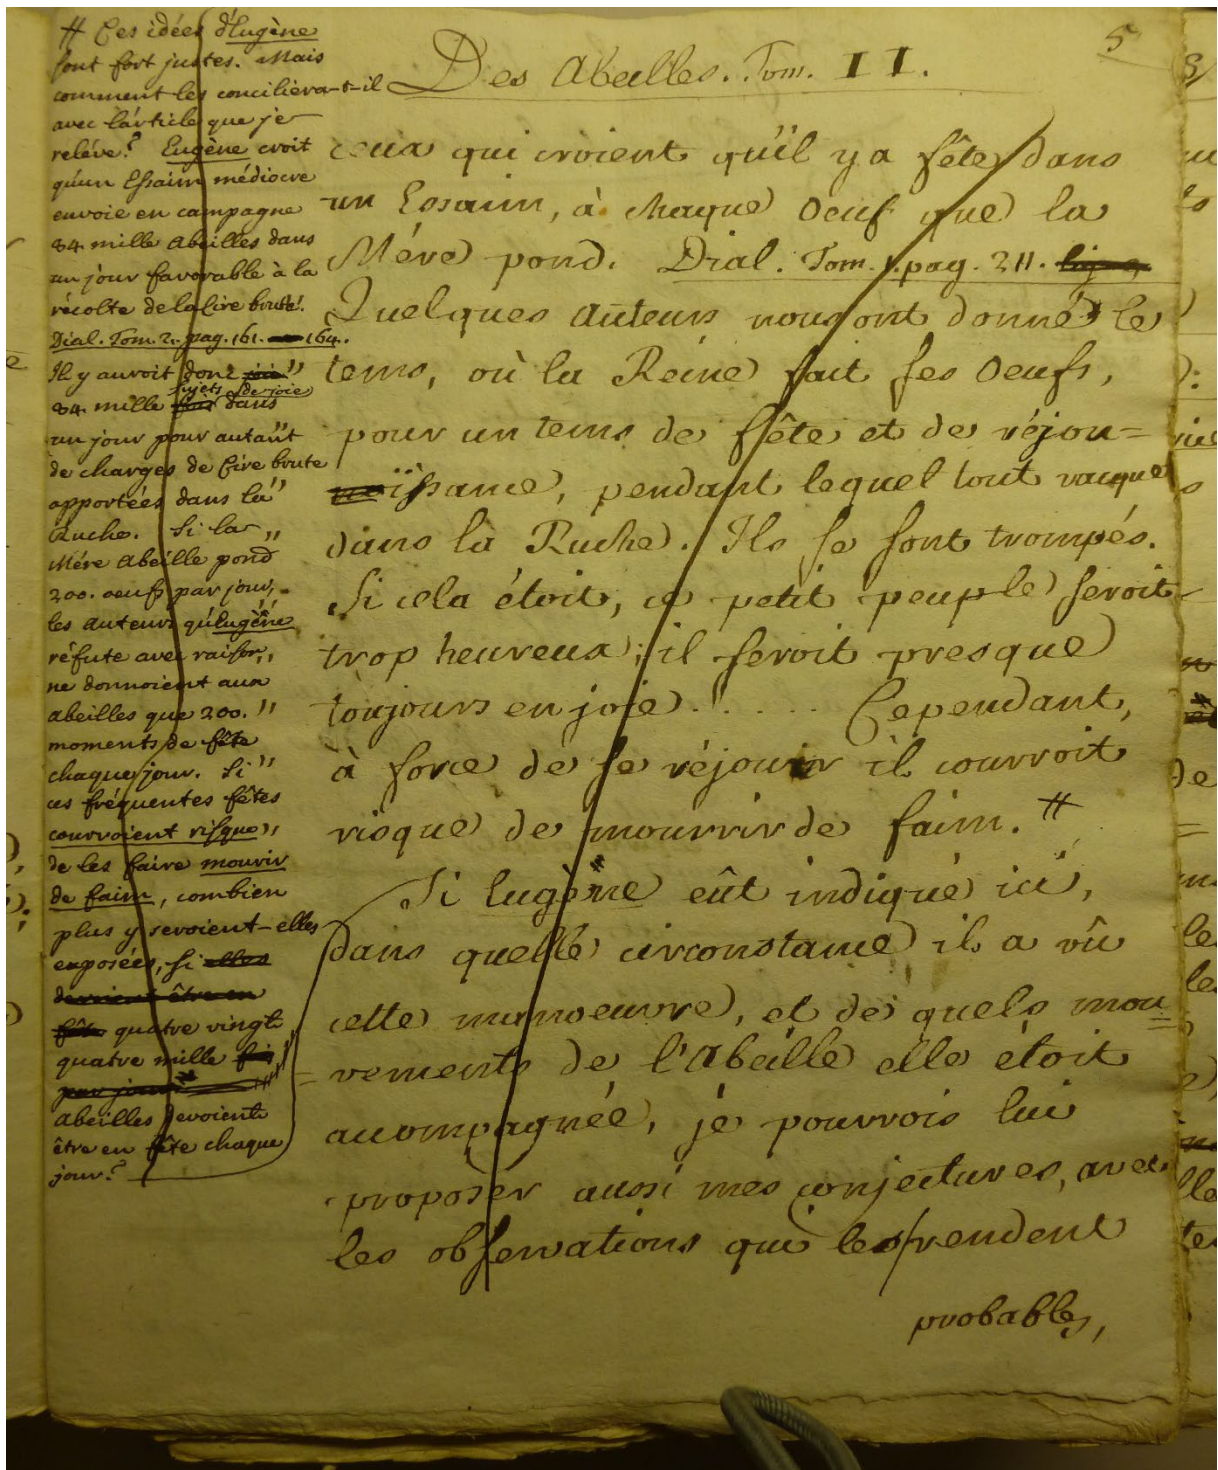 5
Des Abeilles. Tom. II.
ceux qui croient qu'il y a fête dans
un Essaim, à chaque Oeuf que la
Mére pond. Dial. Tom. 1. pag. 211. ligne
Quelques Auteurs nous ont donné le
tems, où la Reine fait ses Oeufs,
pour un tems de fête et de réjou=
issance, pendant lequel tout vacque
dans la Ruche. Ils se sont trompés.
Si cela étoit, ce petit peuple seroit
trop heureux; il seroit presque
toujours en joie ..... Cependant,
à force de se réjouir il courroit
risque de mourrir de faim. #
Si Eugène eût indiqué ici,
dans quelle circonstance il a vû
cette manoeuvre, et de quels mou
=vements de l'Abeille elle étoit
accompagnée, je pourrois lui
proposer aussi mes conjectures, avec
les observations qui les rendent
probables,
# Ces idées d'Eugène
sont fort justes. Mais
comment les conciliera-t-il
avec l'article que je
reléve? Eugène croit
qu'un Essaim médiocre
envoie en campagne
84. mille Abeilles dans
un jour favorable à la
récolte de la Cire brute.
Dial. Tom. 2. pag. 161. 164.
Il y auroit donc
84. mille sujets de joie dans
un jour pour autant
de charges de Cire brute
apportées dans la
Ruche. Si la
Mére Abeille pond
200. oeufs par jour,
les Auteurs qu'Eugène
réfute avec raison,
ne donnoient aux
Abeilles que 200.
moments de fête
chaque jour. Si
ces fréquentes fêtes
courroient risque
de les faire mourir
de faim, combien
plus y seroient-elles
exposées, si elles
devoient être en
fête quatre vingt
quatre mille
par jour
Abeilles devoient
être en fête chaque
jour?